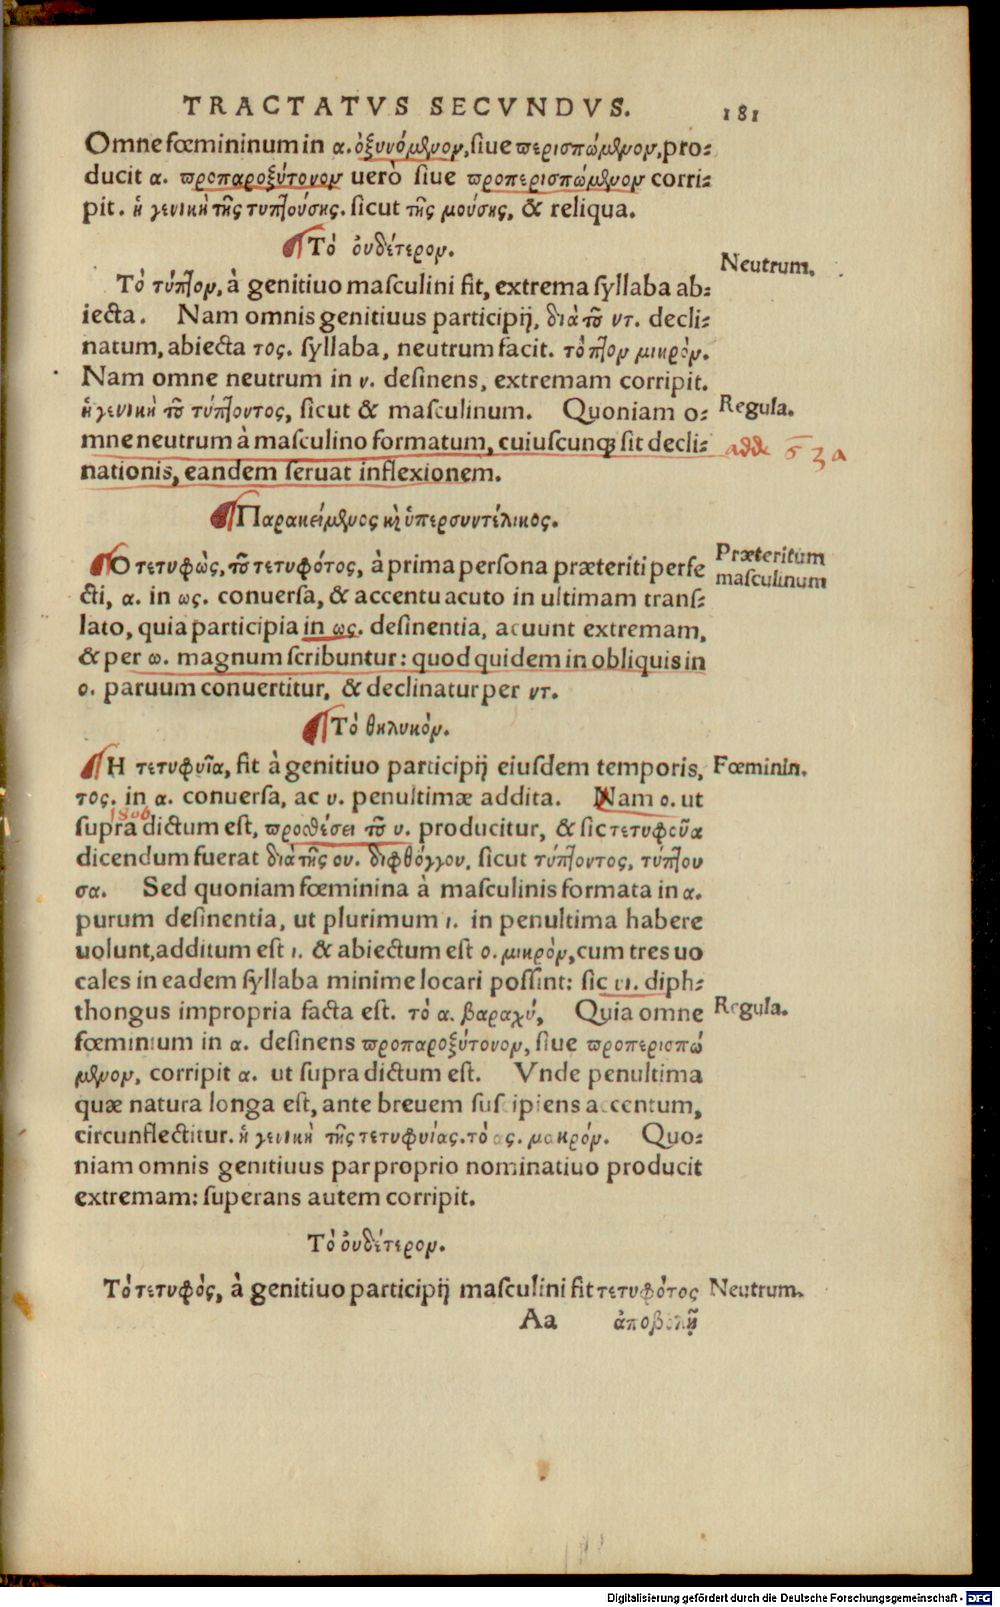 TRACTATVS SECVNDVS. 181
Omne fœmininum in α. ὀξυνόμενον, siue περισπώμενον, pro-
ducit α. προπαροξύτονον uerò siue προπερισπώμενον corri-
pit. ἡ γενικὴ τῆς τυπτούσης. sicut τῆς μούσης, & reliqua.
Τὸ οὐδέτερον.
Neutrum.
Τὸ τύπτον, à genitiuo masculini fit, extrema syllaba ab-
iecta. Nam omnis genitiuus participij, διὰ τοῦ ντ. decli-
natum, abiecta τος. syllaba, neutrum facit. τὸ πτον μικρόν.
Nam omne neutrum in ν. desinens, extremam corripit.
ἡ γενικὴ τοῦ τύπτοντος, sicut & masculinum. Quoniam o- Regula.
mne neutrum à masculino formatum, cuiuscunq; sit decli- adde
nationis, eandem seruat inflexionem.
Παρακείμενος καὶ ὑπερσυντέλικος.
Ὁ τετυφὼς, τοῦ τετυφότος, à prima persona præteriti perfe Præteritum
cti, α. in ως. conuersa, & accentu acuto in ultimam trans- masculinum
lato, quia participia in ως. desinentia, acuunt extremam,
& per ω. magnum scribuntur: quod quidem in obliquis in
ο. paruum conuertitur, & declinatur per ντ.
Τὸ θηλυκόν.
Ἡ τετυφυῖα, fit à genitiuo participij eiusdem temporis, Fœminin.
τος. in α. conuersa, ac υ. penultimæ addita. Nam ο. ut
180b
supra dictum est, προσθέσει τοῦ υ. producitur, & sic τετυφοῦα
dicendum fuerat διὰ τῆς ου. διφθόγγου, sicut τύπτοντος, τύπτου
σα. Sed quoniam fœminina à masculinis formata in α.
purum desinentia, ut plurimum ι. in penultima habere
uolunt, additum est ι. & abiectum est ο. μικρὸν, cum tres uo
cales in eadem syllaba minime locari possint: sic υι. diph-
thongus impropria facta est. τὸ α. βαραχύ, Quia omne Regula.
fœminium in α. desinens προπαροξύτονον, siue προπερισπώ
μενον, corripit α. ut supra dictum est. Vnde penultima
quæ natura longa est, ante breuem suscipiens accentum,
circunflectitur. ἡ γενικὴ τῆς τετυφυίας. τὸ ας. μακρόν. Quo-
niam omnis genitiuus par proprio nominatiuo producit
extremam: superans autem corripit.
Τὸ οὐδέτερον.
Τὸ τετυφὸς, à genitiuo participij masculini fit τετυφότος Neutrum.
Aa ἀποβολῇ
Digitalisierung gefördert durch die Deutsche Forschungsgemeinschaft - DFG